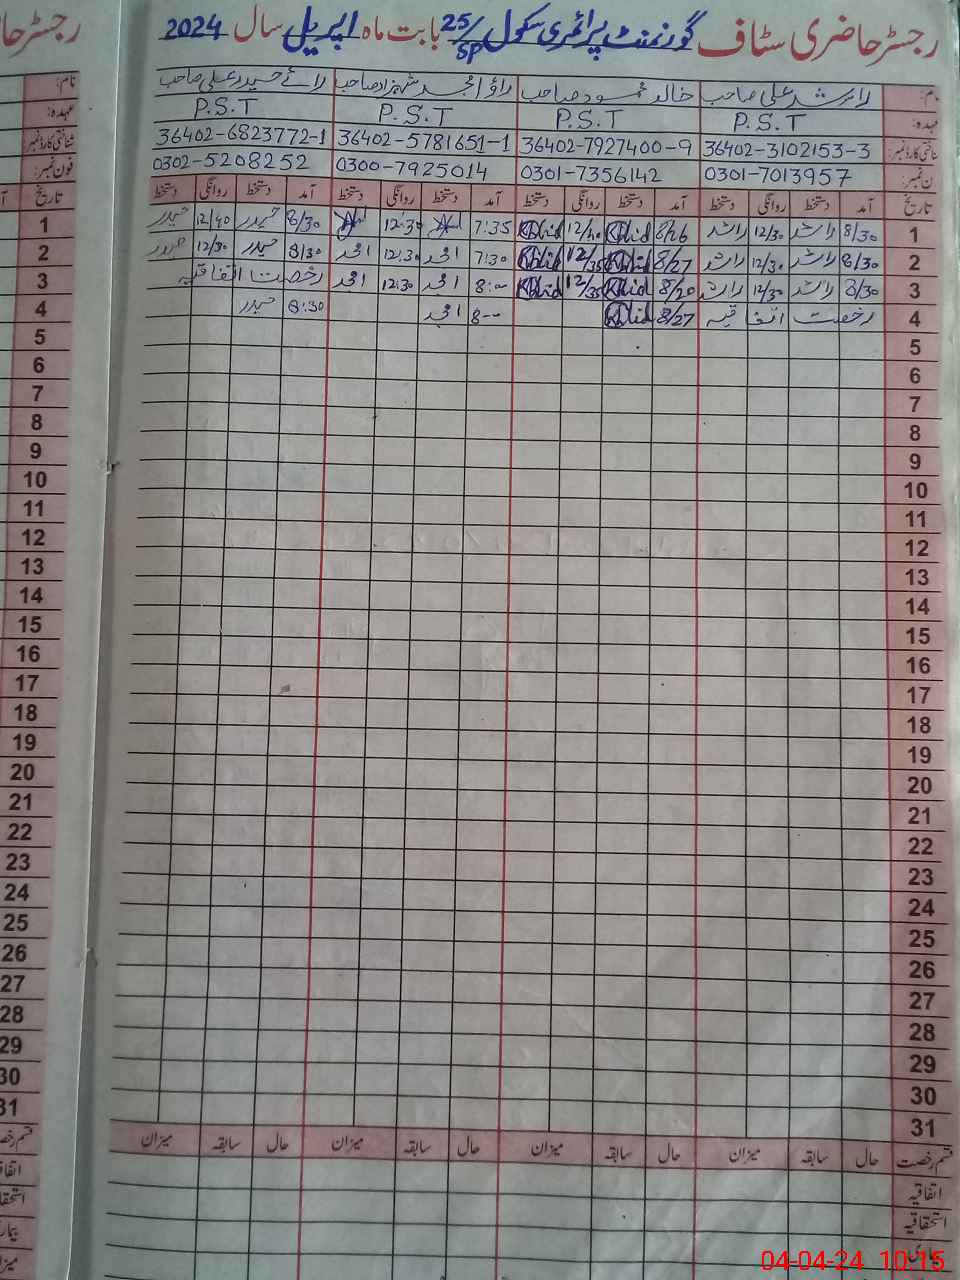 رجسٹر حاضری سٹاف گورنمنٹ پرائمری سکول 25/SP بابت ماہ اپریل سال 2024
نام: راشد علی صاحب خالد محمود صاحب راؤ امجد شہزاد صاحب رائے حیدر علی صاحب
عہدہ: P.S.T P.S.T P.S.T P.S.T
شناختی کارڈ نمبر: 36402-3102153-3 36402-7927400-9 36402-5781651-1 36402-6823772-1
فون نمبر: 0301-7013957 0301-7356142 0300-7925014 0302-5208252
تاریخ آمد دستخط روانگی دستخط آمد دستخط روانگی دستخط آمد دستخط روانگی دستخط آمد دستخط روانگی دستخط
1 8/30 راشد 12/30 راشد 8/26 Khalid 12/40 Khalid 7:35 12:30 8/30 حیدر 12/40 حیدر
2 8/30 راشد 12/30 راشد 8/27 Khalid 12/35 Khalid 7:30 امجد 12:30 امجد 8/30 حیدر 12/30 حیدر
3 8/30 راشد 12/30 راشد 8/20 Khalid 12/35 Khalid 8:00 امجد 12:30 امجد رخصت اتفاقیہ
4 رخصت اتفاقیہ 8/27 Khalid 8-00 امجد 8:30 حیدر
5
6
7
8
9
10
11
12
13
14
15
16
17
18
19
20
21
22
23
24
25
26
27
28
29
30
31
قسم رخصت حال سابقہ میزان حال سابقہ میزان حال سابقہ میزان حال سابقہ میزان
اتفاقیہ
استحقاقیہ
04-04-24 10:15
رجسٹر حا
نام:
عہدہ:
شناختی کارڈ نمبر:
فون نمبر:
تاریخ آ
1
2
3
4
5
6
7
8
9
10
11
12
13
14
15
16
17
18
19
20
21
22
23
24
25
26
27
28
29
30
31
قسم رخص
اتفا
استحقا
بیمار
میزا